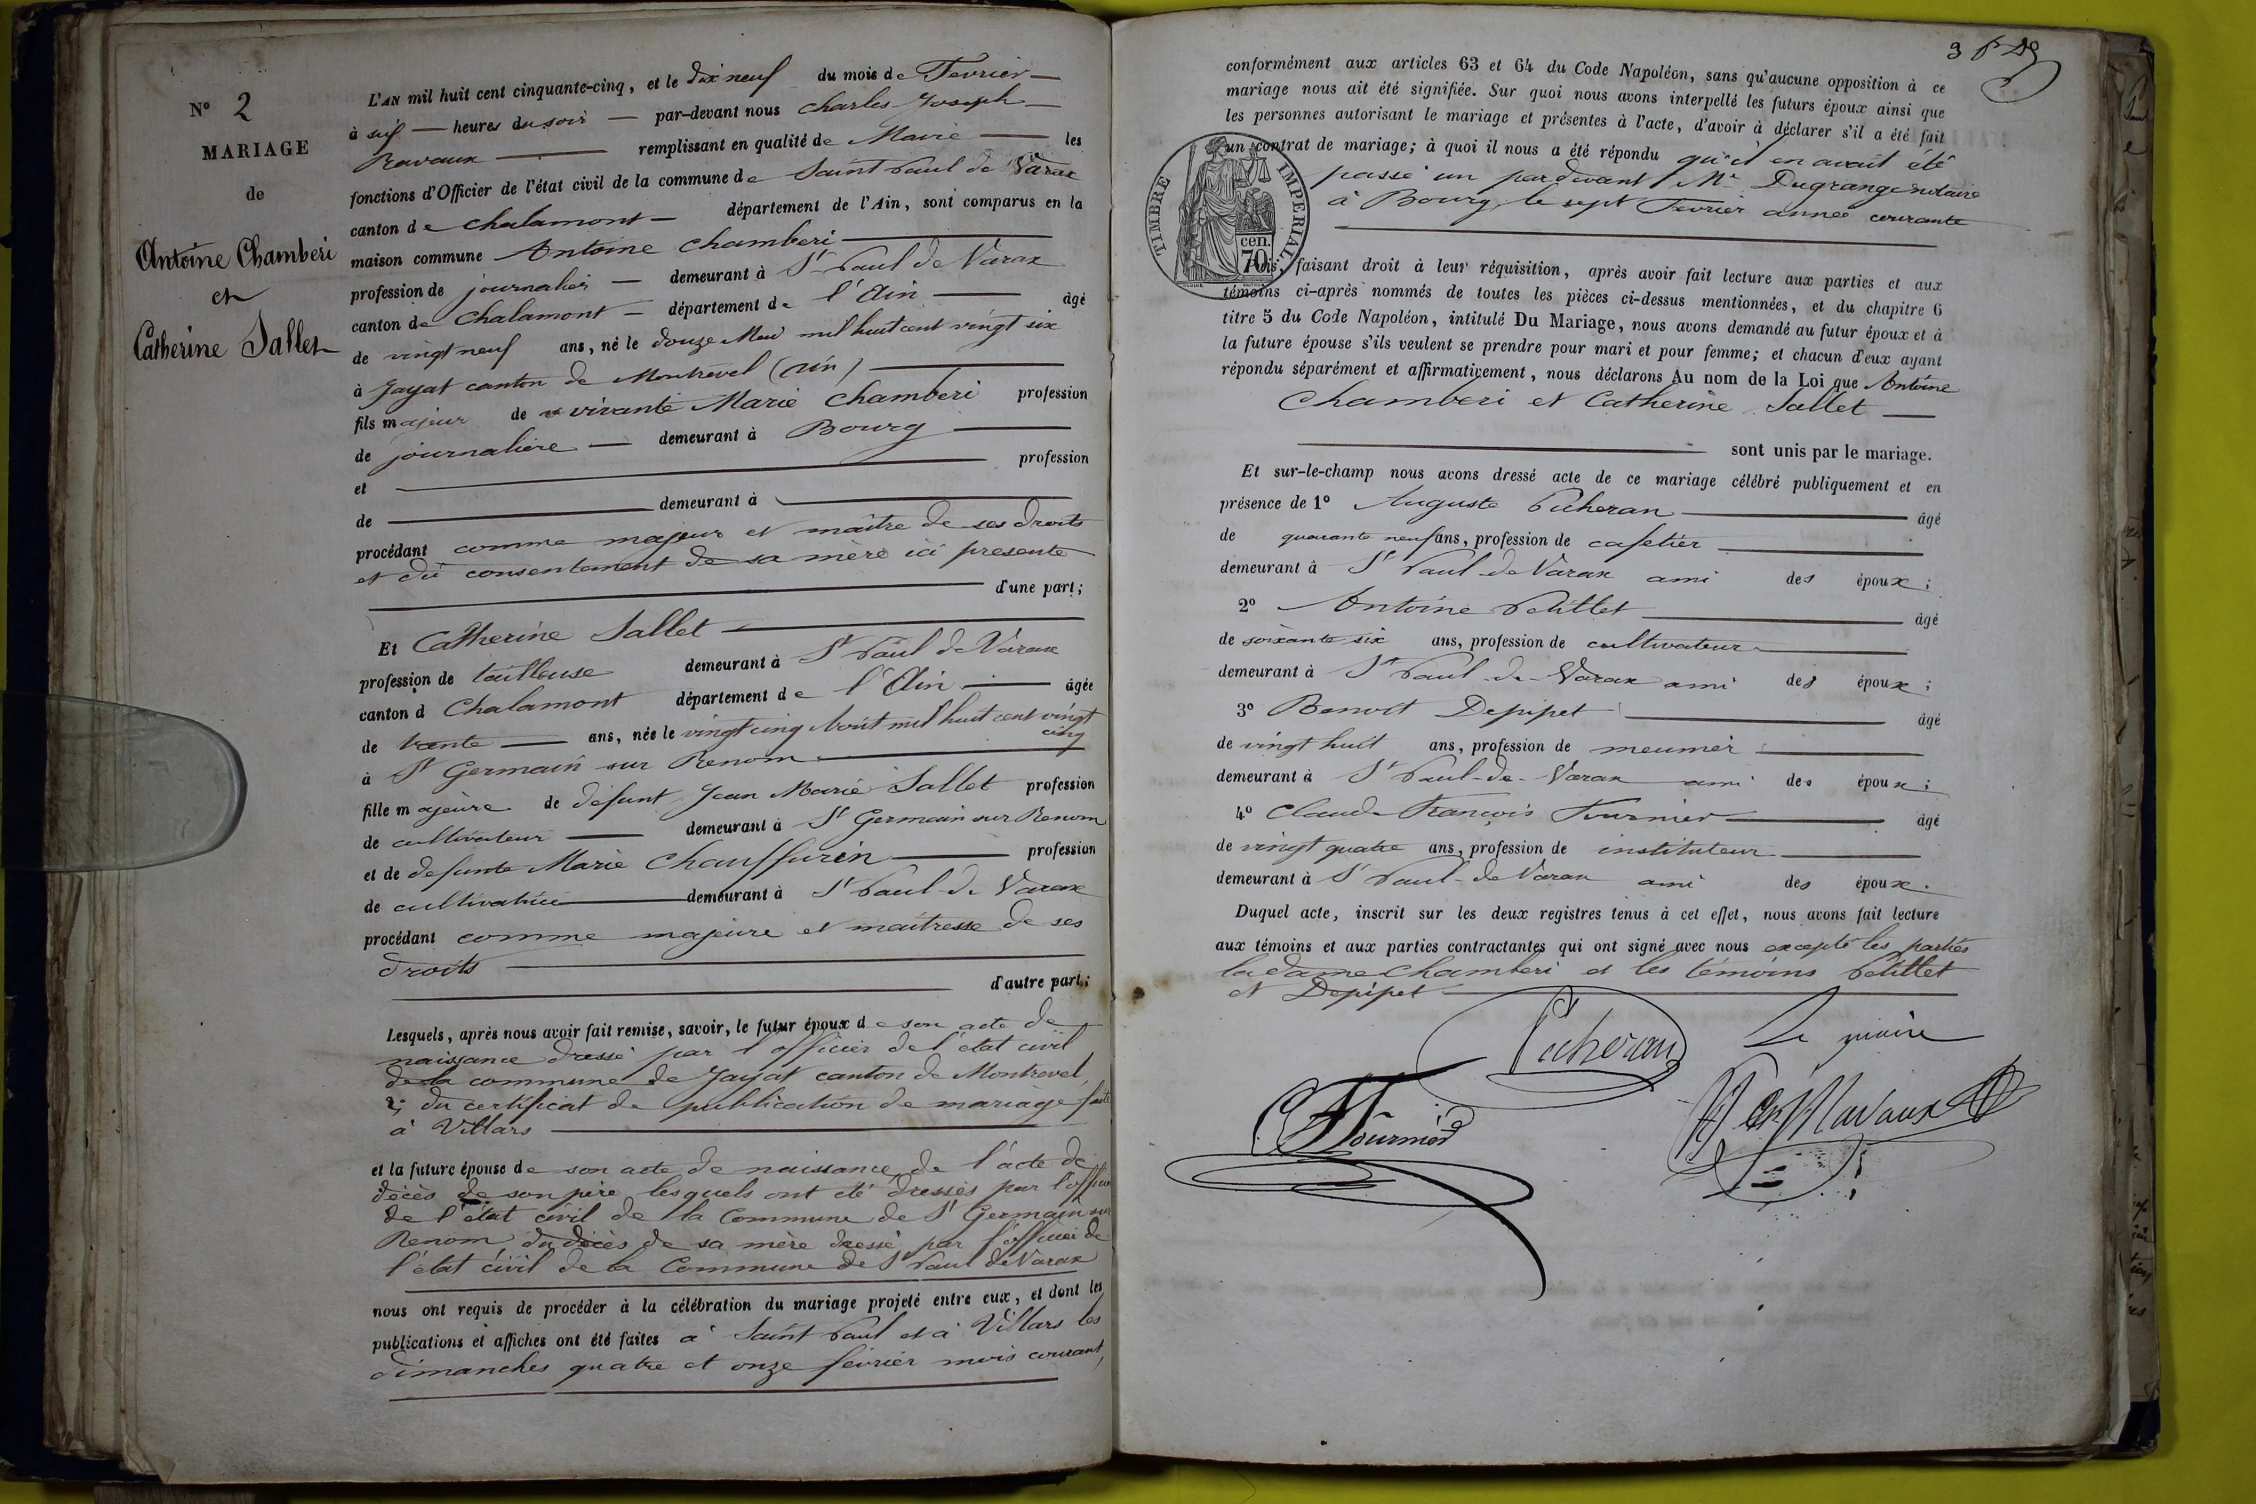 N° 2
MARIAGE
de
Antoine Chamberi
et
Catherine Sallet
L'AN mil huit cent cinquante-cinq, et le dix neuf du mois de Fevrier
à six heures du soir par-devant nous Charles Joseph
Ravaux remplissant en qualité de Maire les
fonctions d'Officier de l'état civil de la commune de Saint Paul de Varax
canton de Chalamont département de l'Ain, sont comparus en la
maison commune Antoine Chamberi
profession de journalier demeurant à St Paul de Varax
canton de Chalamont département de l'Ain âgé
de vingt neuf ans, né le douze Mai mil huit cent vingt six
à Jayat canton de Montrevel (Ain)
fils majeur de vivante Marie Chamberi profession
de journalière demeurant à Bourg
et profession
de demeurant à
procédant comme majeur et maître de ses droits
et du consentement de sa mère ici presente
d'une part;
Et Catherine Sallet
profession de tailleuse demeurant à St Paul de Varax
canton d Chalamont département de l'Ain âgée
de trente ans, née le vingt cinq Août mil huit cent vingt
cinq
à St Germain sur Renom
fille majeure de défunt Jean Marie Sallet profession
de cultivateur demeurant à St Germain sur Renom
et de defunte Marie Chauffurin profession
de cultivatrice demeurant à St Paul-de Varax
procédant comme majeure et maitresse de ses
droits
d'autre part;
Lesquels, après nous avoir fait remise, savoir, le futur époux de son acte de
naissance dressé par l'officier de l'état civil
de la commune de Jayat canton de Montrevel,
2° du certificat de publication de mariage faite
à Villars
et la future épouse de son acte de naissance, de l'acte de
décès de son père lesquels ont été dressés par l'officier
de l'état civil de la Commune de St Germain sur
Renom du décès de sa mère dressé par l'officier de
l'état civil de la Commune de St Paul de Varax
nous ont requis de procéder à la célébration du mariage projeté entre eux, et dont les
publications et affiches ont été faites à Saint Paul et à Villars les
dimanches quatre et onze février mois courant,
conformément aux articles 63 et 64 du Code Napoléon, sans qu'aucune opposition à ce
mariage nous ait été signifiée. Sur quoi nous avons interpellé les futurs époux ainsi que
les personnes autorisant le mariage et présentes à l'acte, d'avoir à déclarer s'il a été fait
un contrat de mariage; à quoi il nous a été répondu qu'il en avait été
passé un pardevant Me Dugrange notaire
à Bourg, le sept Fevrier année courante
TIMBRE IMPERIAL
70 cen.
Puis, faisant droit à leur réquisition, après avoir fait lecture aux parties et aux
témoins ci-après nommés de toutes les pièces ci-dessus mentionnées, et du chapitre 6
titre 5 du Code Napoléon, intitulé Du Mariage, nous avons demandé au futur époux et à
la future épouse s'ils veulent se prendre pour mari et pour femme; et chacun d'eux ayant
répondu séparément et affirmativement, nous déclarons Au nom de la Loi que Antoine
Chamberi et Catherine Sallet
sont unis par le mariage.
Et sur-le-champ nous avons dressé acte de ce mariage célébré publiquement et en
présence de 1° Auguste Picheran âgé
de quarante neuf ans, profession de cafetier
demeurant à St Paul de Varax ami des époux;
2° Antoine Petittet âgé
de soixante six ans, profession de cultivateur
demeurant à St Paul-de-Varax ami des époux;
3° Benoit Depipet âgé
de vingt huit ans, profession de meunier
demeurant à St Paul-de-Varax ami des époux;
4° Claude François Fournier âgé
de vingt quatre ans, profession de instituteur
demeurant à St Paul-de Varax ami des époux.
Duquel acte, inscrit sur les deux registres tenus à cet effet, nous avons fait lecture
aux témoins et aux parties contractantes qui ont signé avec nous excepté les parties
la dame Chamberi et les témoins Petittet
et Depipet
Picheran Le maire
C. F. Fournier Ravaux